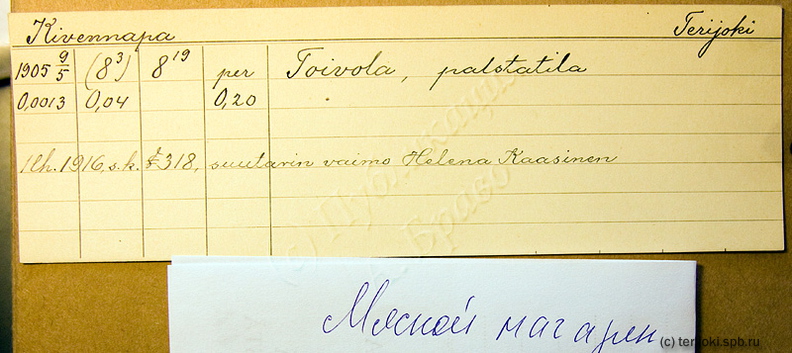 Kivennapa Terijoki
1905 9/5 (8³) 8¹⁹ per Toivola, palstatila
0,0013 0,04 0,20
1lh. 1916, s.k. § 318, suutarin vaimo Helena Kaasinen
Мясной магазин
(c) terijoki.spb.ru